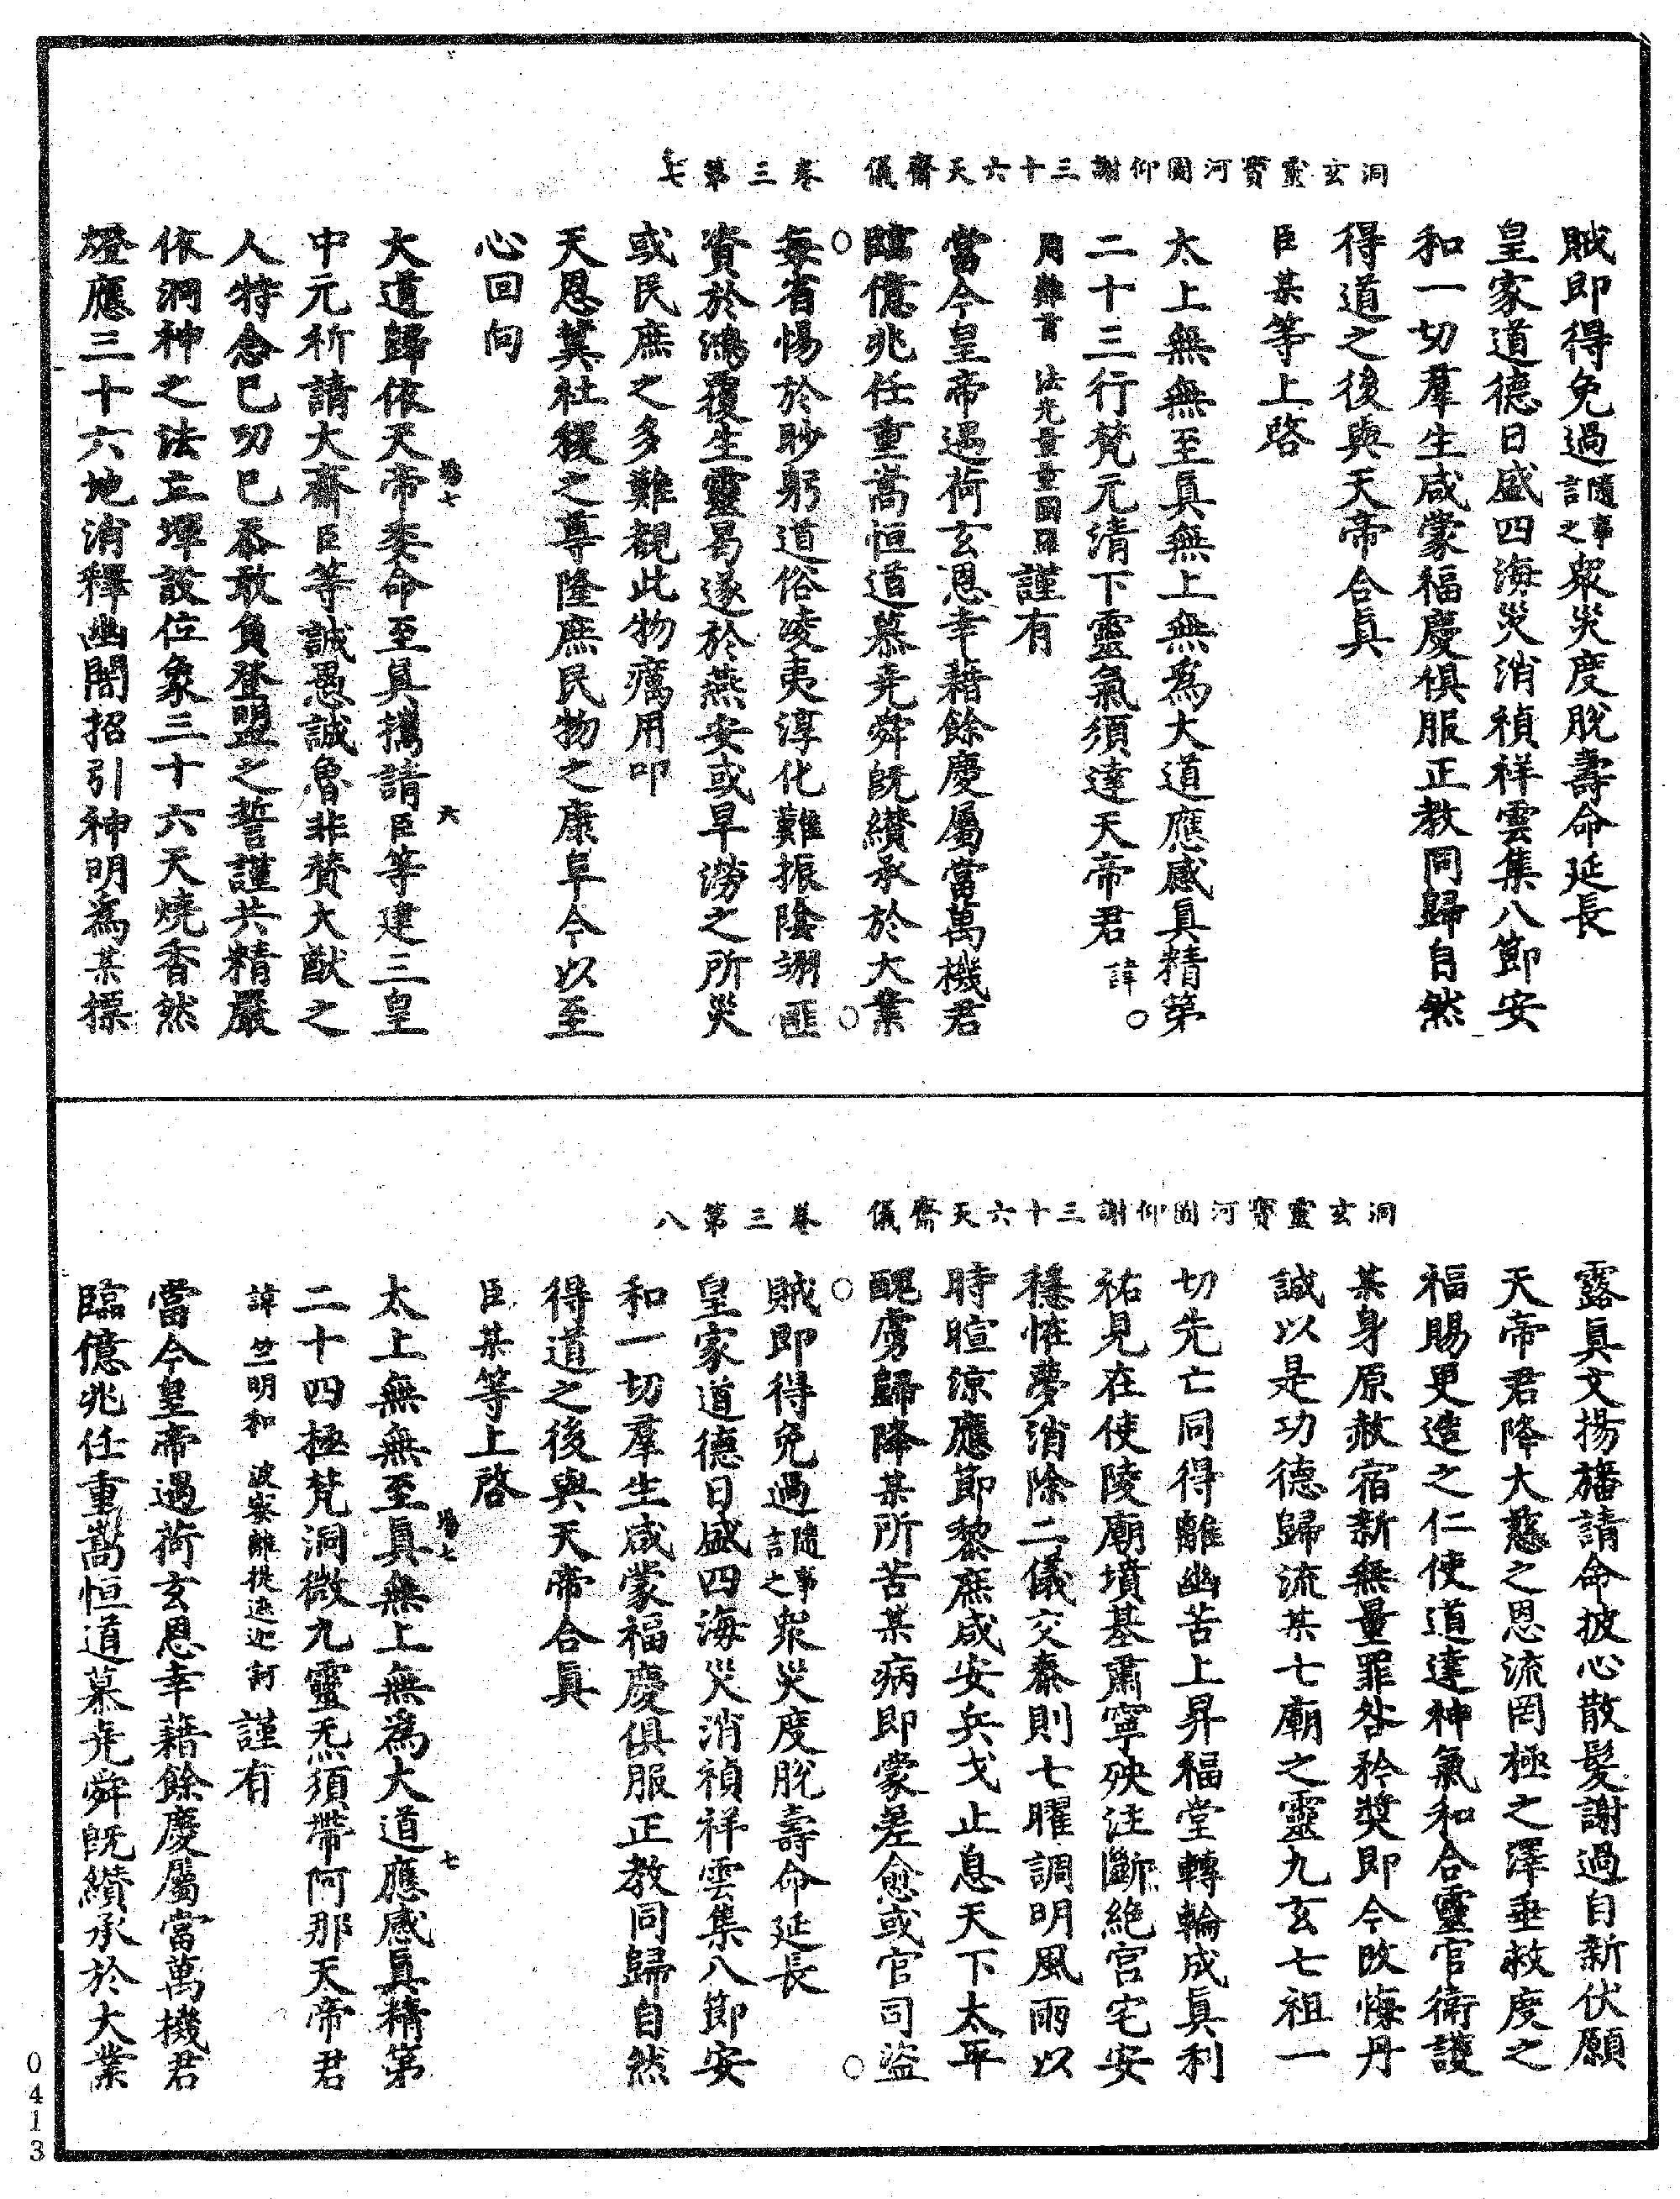 洞玄靈寶河圖仰謝三十六天齋儀　卷三第七
賊即得免過隨事言之衆災度脫壽命延長
皇家道德日盛四海災消禎祥雲集八節安
和一切羣生咸蒙福慶俱服正教同歸自然
得道之後與天帝合眞
臣某等上啓
太上無無至眞無上無為大道應感眞精第
二十三行梵元清下靈氣須達天帝君諱○
謹有
當今皇帝遇荷玄恩幸藉餘慶屬當萬機君
臨億兆任重嵩恒道慕堯舜旣纘承於大業
○每省惕於眇躬道俗凌夷淳化難振陰翊匪
資於鴻覆生靈曷遂於燕安或旱澇之所災
或民庶之多難觀此物癘用叩
天恩冀社稷之尊隆庶民物之康阜今以至
心回向
大道歸依天帝委命至眞擕請臣等建三皇
中元祈請大齋臣等誠愚誠魯非賛大猷之
人特念已功已忝敢負登盟之誓謹共精嚴
依洞神之法立壇設位象三十六天燒香然
燈應三十六地消釋幽闇招引神明為某摽
洞玄靈寶河圖仰謝三十六天齋儀　卷三第八
露眞文揚旛請命披心散髮謝過自新伏願
天帝君降大慈之恩流罔極之澤垂救度之
福賜更造之仁使道達神氣和合靈官衛護
某身原赦宿新無量罪咎矜奬即今改悔丹
誠以是功德歸流某七廟之靈九玄七祖一
切先亡同得離幽苦上昇福堂轉輪成眞利
祐見在使陵廟墳基肅寧殃注斷絶宮宅安
穩恠夢消除二儀交泰則七曜調明風雨以
時暄涼應節黎庶咸安兵戈止息天下太平
醜虜歸降某所苦某病即蒙差愈或官司盜
○賊即得免過隨事言之衆災度脫壽命延長
皇家道德日盛四海災消禎祥雲集八節安
和一切羣生咸蒙福慶俱服正教同歸自然
得道之後與天帝合眞
臣某等上啓
太上無無至眞無上無為大道應感眞精第
二十四極梵洞微九靈炁須帶阿那天帝君
諱　明和　謹有
當今皇帝遇荷玄恩幸藉餘慶屬當萬機君
臨億兆任重嵩恒道慕堯舜旣纘承於大業
0413